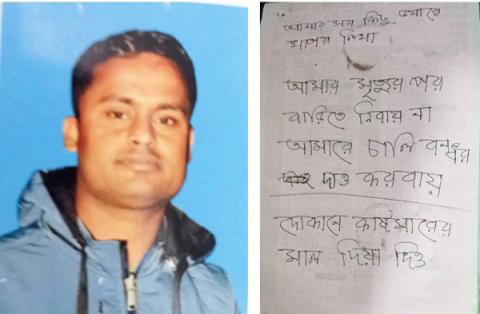 আমার সব কিছু
সাগর মিয়া
আমার মৃত্যুর পর
বাড়িতে নিবায় না
আমারে চালি বন্দর
দাও করবায়
দোকানে কাষ্টমারের
মাল দিয়া দিও